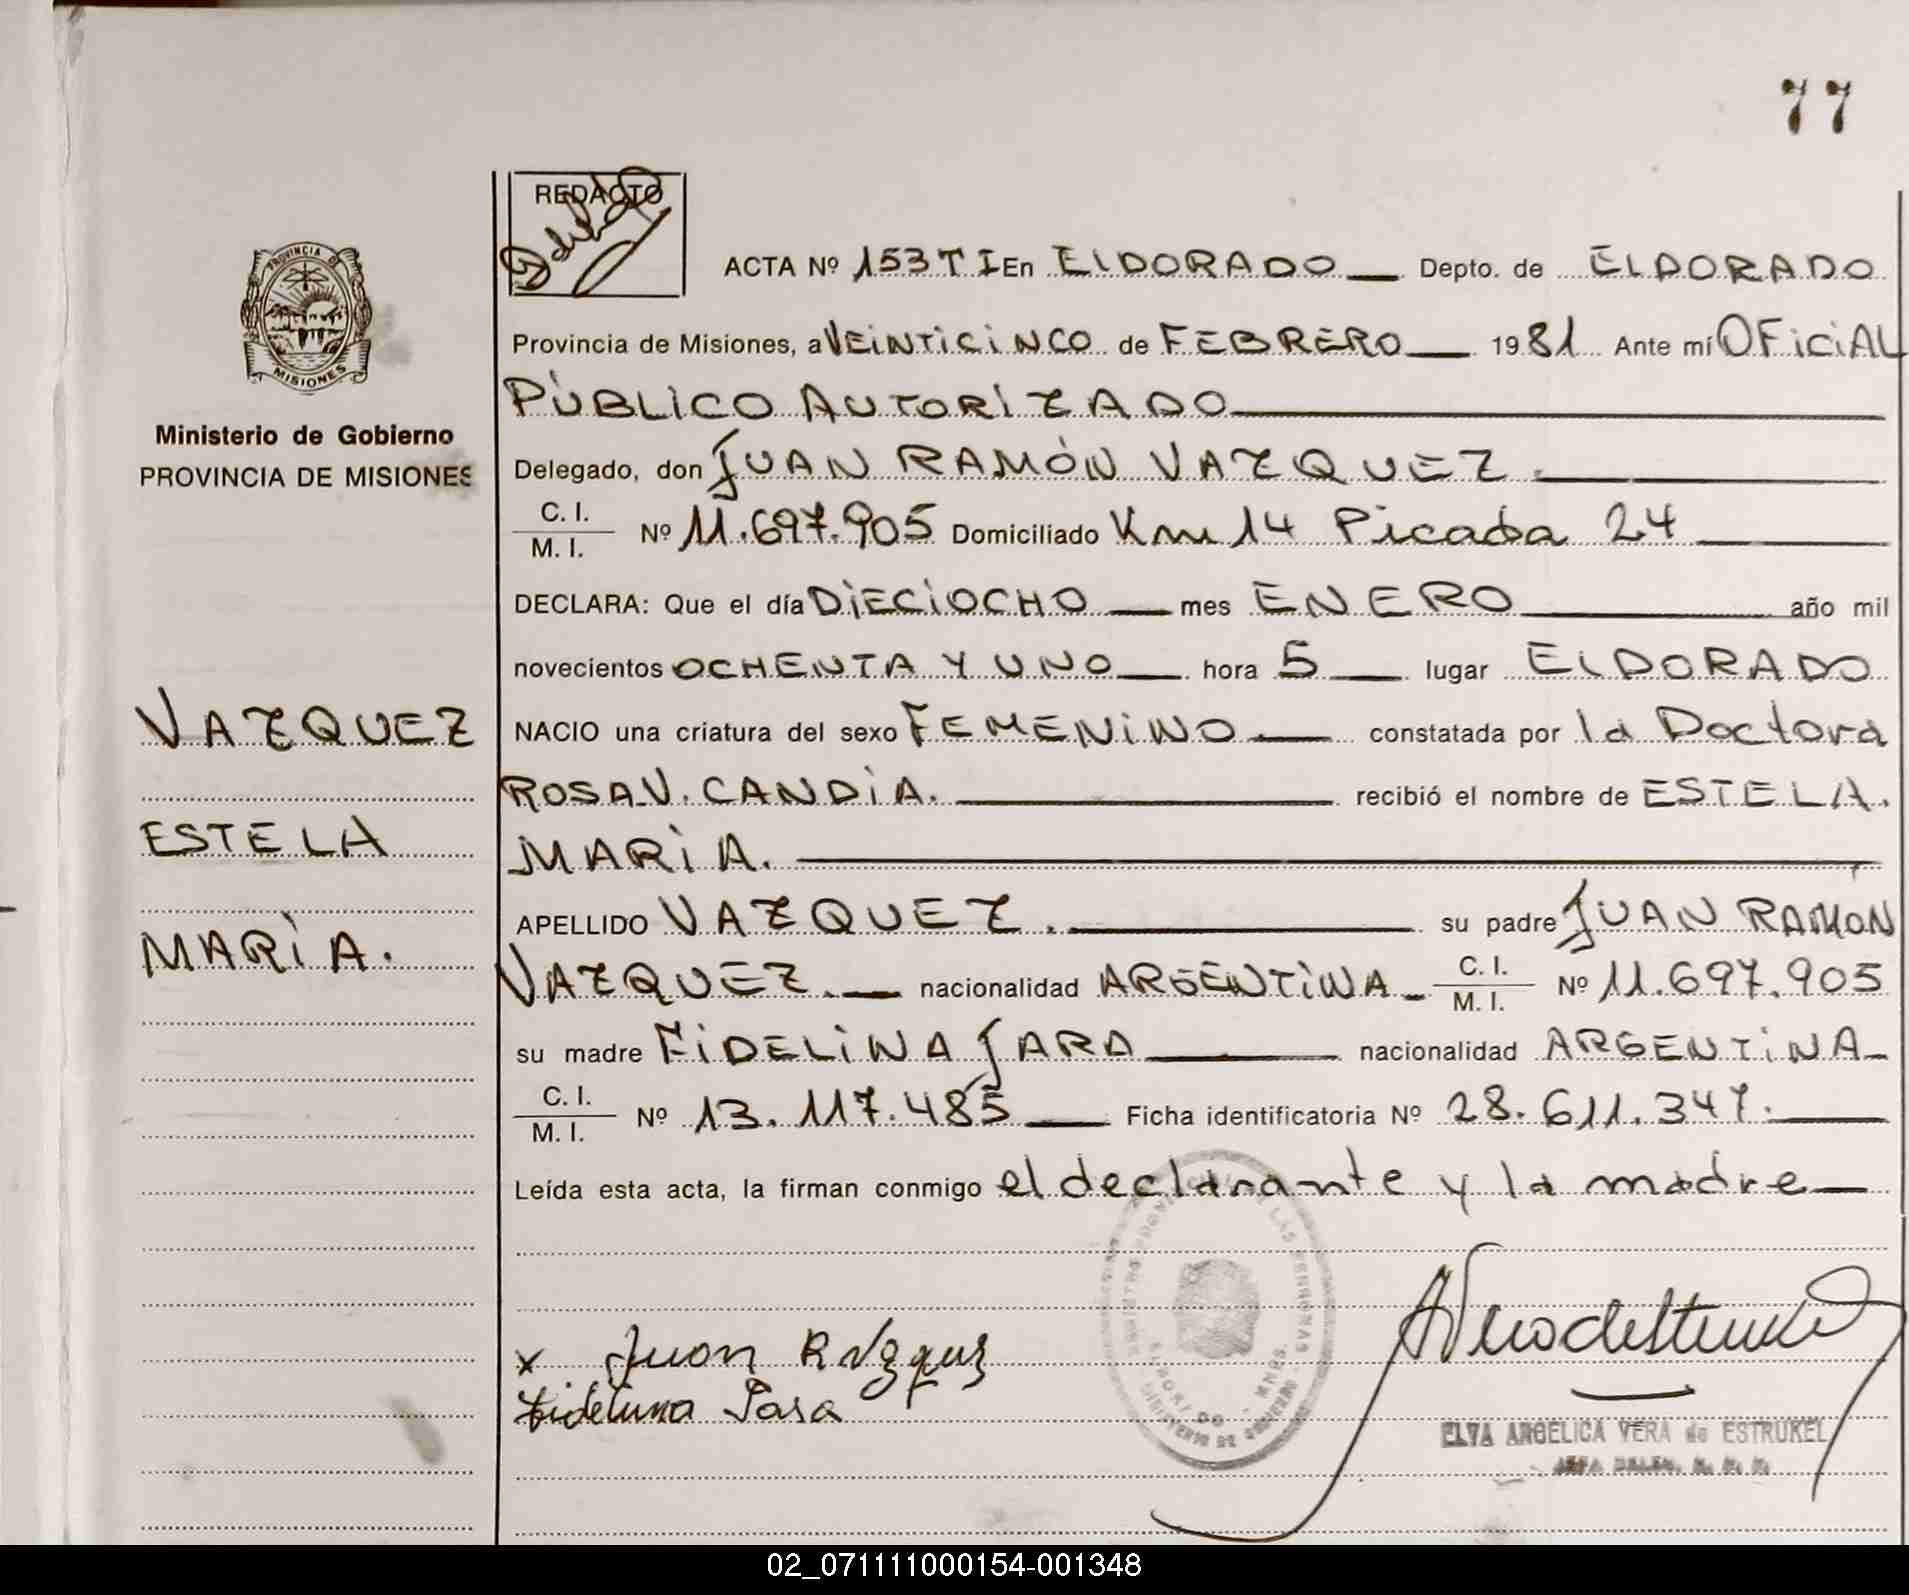 77
REDACTO
PROVINCIA DE
MISIONES
Ministerio de Gobierno
PROVINCIA DE MISIONES
ACTA Nº 153 T I En ELDORADO Depto. de ELDORADO
Provincia de Misiones, a VEINTICINCO de FEBRERO 1981 Ante mí OFICIAL
PÚBLICO AUTORIZADO
Delegado, don JUAN RAMÓN VAZQUEZ.
C. I.
M. I. Nº 11.697.905 Domiciliado Km 14 Picada 24
DECLARA: Que el día DIECIOCHO mes ENERO año mil
novecientos OCHENTA Y UNO hora 5 lugar ELDORADO
NACIO una criatura del sexo FEMENINO constatada por la Doctora
ROSA V. CANDIA. recibió el nombre de ESTELA.
MARÍA.
APELLIDO VAZQUEZ. su padre JUAN RAMÓN
VAZQUEZ. nacionalidad ARGENTINA C. I.
M. I. Nº 11.697.905
su madre FIDELINA JARA nacionalidad ARGENTINA
C. I.
M. I. Nº 13.117.485 Ficha identificatoria Nº 28.611.347.
Leída esta acta, la firman conmigo el declarante y la madre
VAZQUEZ
ESTELA
MARÍA.
x Juan R Vzquz
Fidelina Jara
ELVA ANGELICA VERA de ESTRUKEL
02_071111000154-001348